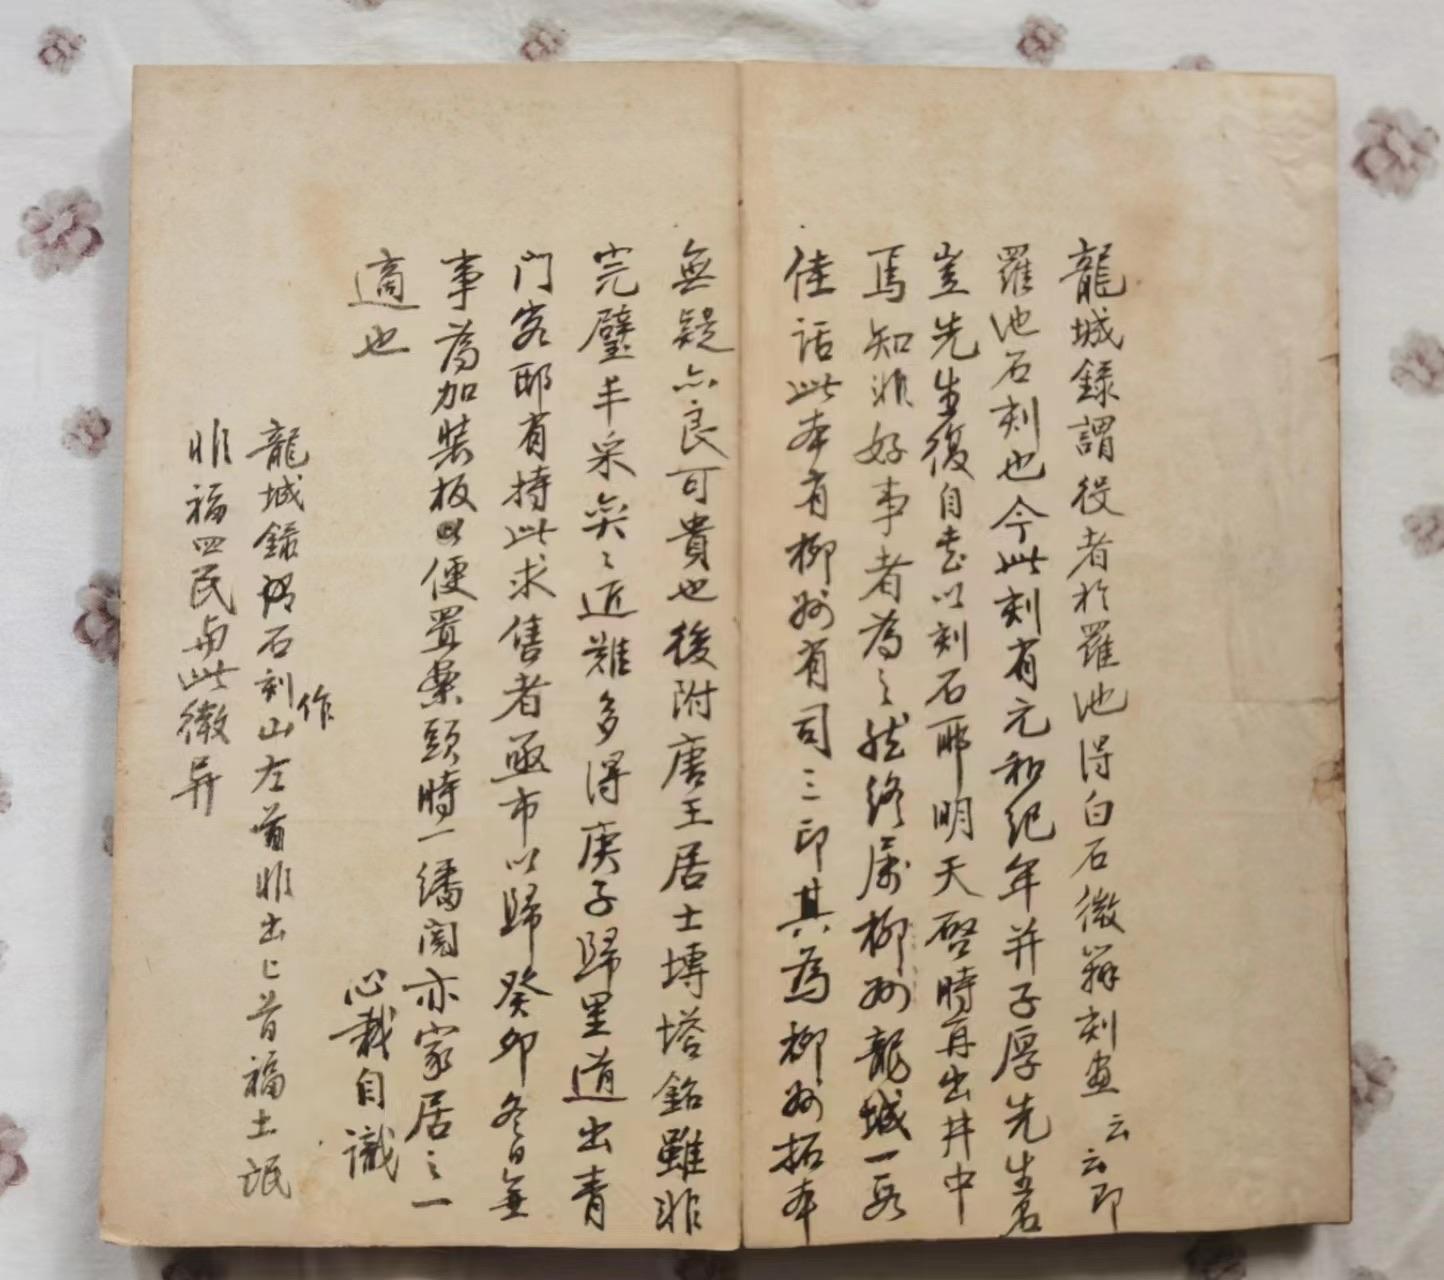 龍城錄謂役者於羅池得白石微辨刻畫云云即
羅池石刻也今此刻有元和紀年并子厚先生名
豈先生復自書以刻石耶明天啓時再出井中
焉知非好事者為之然終屬柳州龍城一段
佳話此本有柳州有司三印其為柳州拓本
無疑亦良可貴也後附唐王居士塼塔銘雖非
完璧丰采奕〻近難多得庚子歸里道出青
門客邸有持此求售者亟市以歸癸卯冬日無
事為加裝板以便置案頭時一繙閱亦家居之一
適也
心栽自識
龍城錄所石刻作山左首非出匕首福土氓
非福四民與此微异